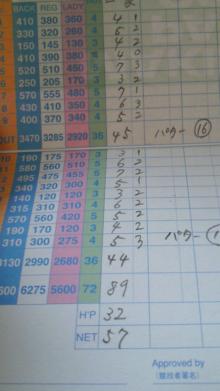 BACK REG LADY
410 380 360 4 4 1
330 320 260 4 5 2
150 145 130 3 4 2
410 390 380 4 4 0
520 510 450 5 7 3
250 205 170 3 3 2
570 555 480 5 7
430 410 350 4 6 3
400 4 5 2
OUT 3470 3285 2920 36 45 パター 16
190 175 170 3 3 1
580 560 510 5 6 2
495 475 455 5 7 2
340 320 300 4 5 1
140 120 120 3 3 2
315 310 310 4 6 2
570 560 420 5 5 2
190 170 120 3 4 2
310 300 275 4 5 3 パター
3130 2990 2680 36 44
6275 5600 72 89
H'P 32
NET 57
Approved by
(競技者署名)